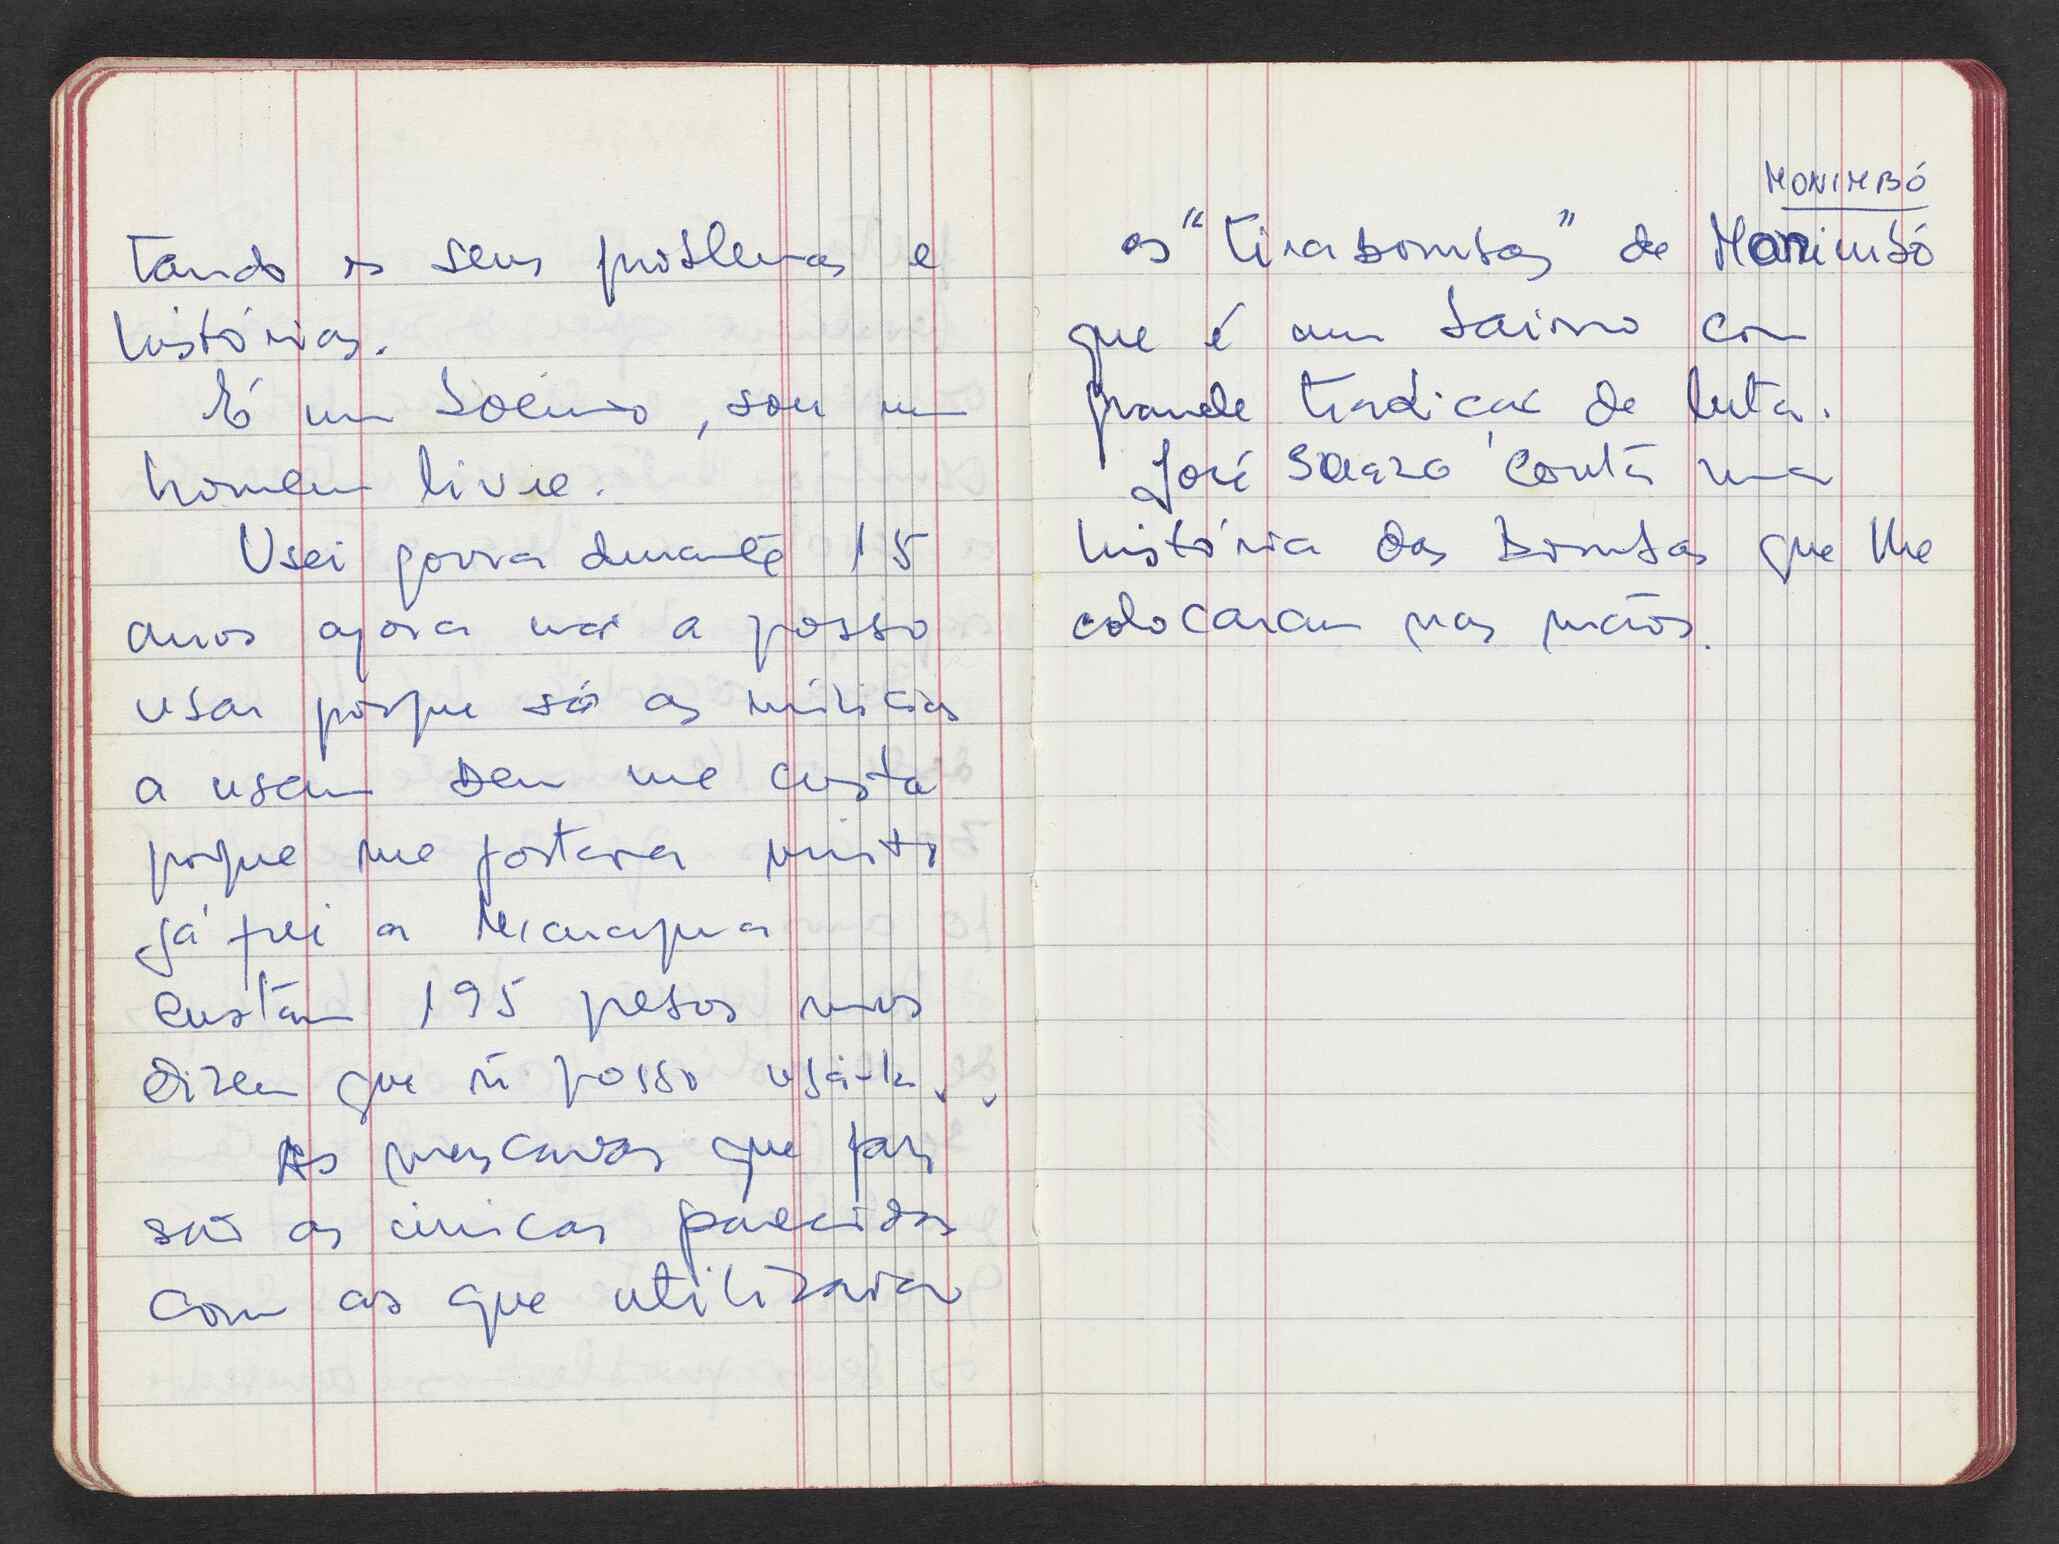 tando os seus problemas e
histórias.
É um boémio, sou um
homem livre.
Usei gorra durante 15
anos agora não a posso
usar porque só as milicias
a usam bem me custa
porque me gostava muito
Já fui a Nicaragua
custam 195 pesos mas
dizem que ñ posso usá-la.
As mascaras que faz
são as unicas parecidas
com as que utilizavam
MONIMBÓ
os "tirabombas" de Monimbó
que é um bairro com
grande tradição de luta.
José conta uma
história das bombas que lhe
colocaram nas mãos.